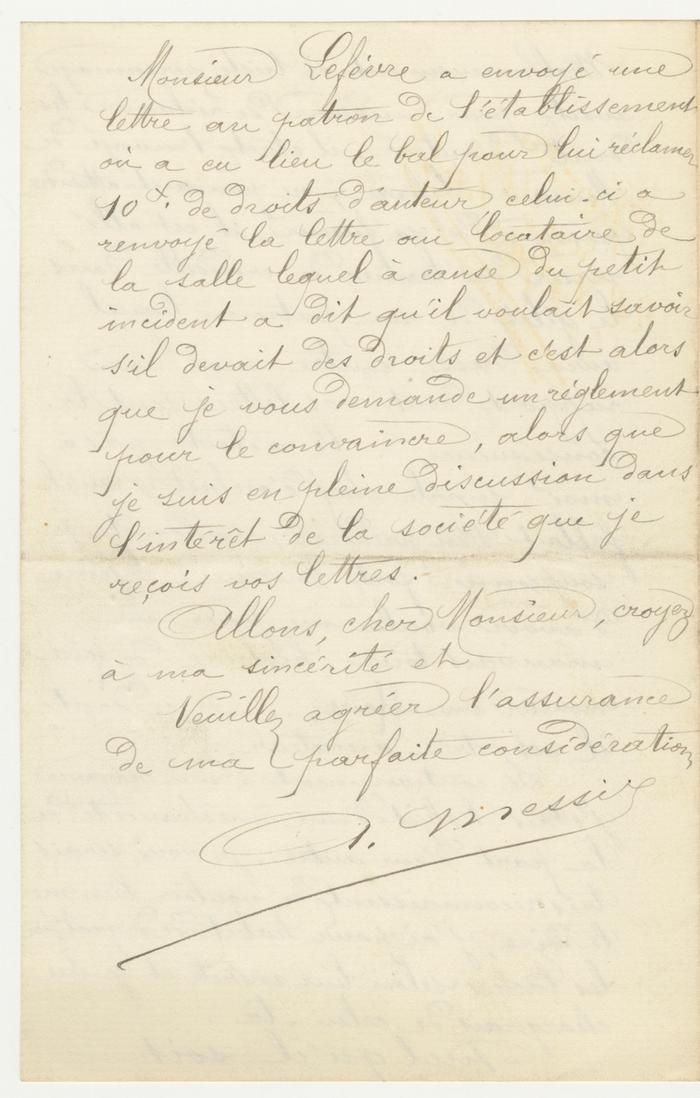 Monsieur Lefévre a envoyé une
lettre au patron de l'établissement
où a eu lieu le bal pour lui réclamer
10 f. de droits d'auteur celui-ci a
renvoyé la lettre au locataire de
la salle lequel à cause du petit
incident a dit qu'il voulait savoir
s'il devait des droits et c'est alors
que je vous demande un réglement
pour le convaincre, alors que
je suis en pleine discussion dans
l'intérêt de la société que je
reçois vos lettres.
Allons, cher Monsieur, croyez
à ma sincérité et
Veuillez agréer l'assurance
de ma parfaite considération